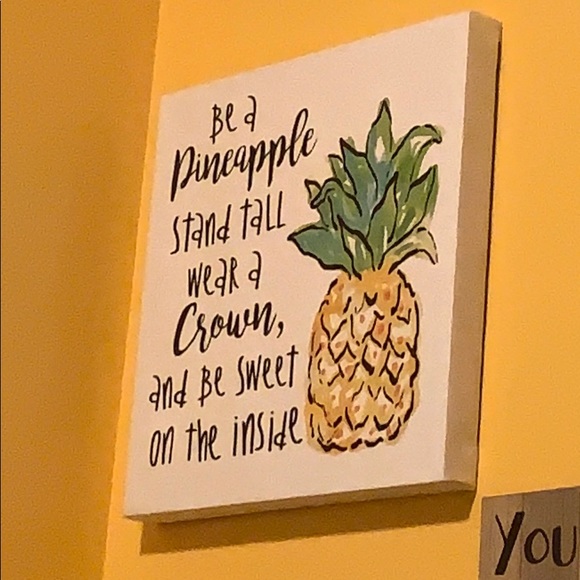 Be a
Pineapple
stand tall
wear a
Crown,
and Be sweet
on the inside
You